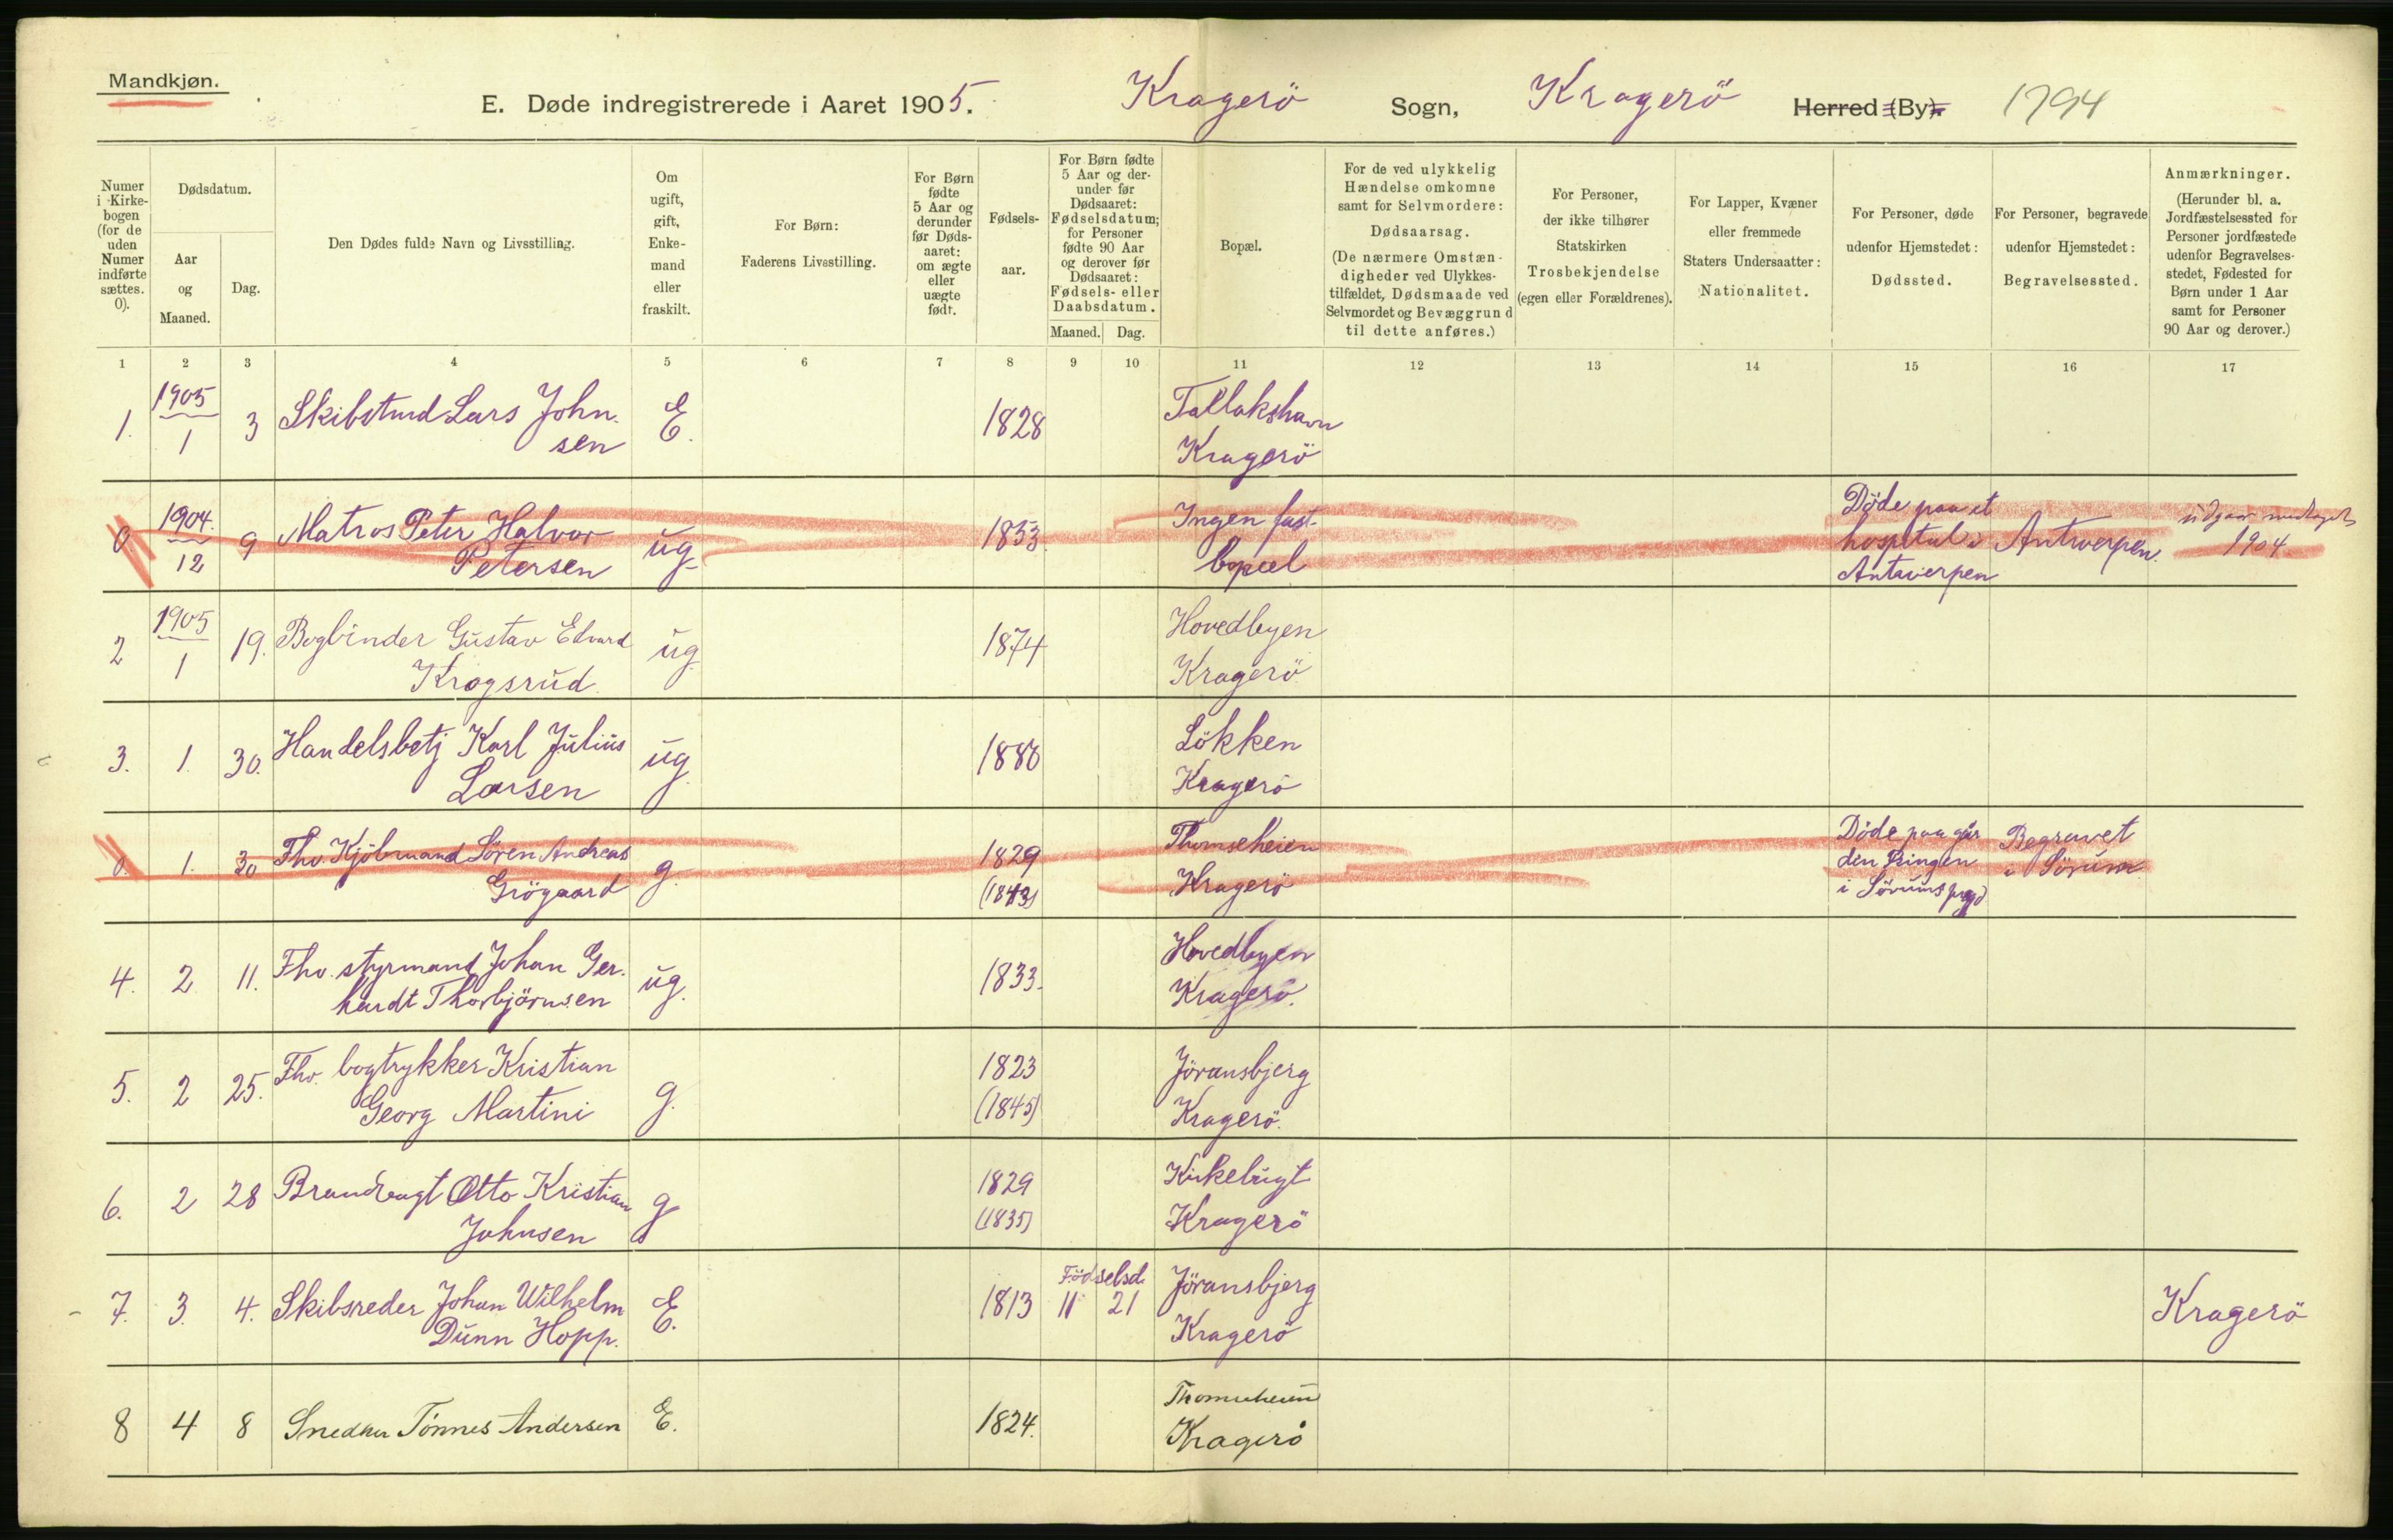 Mandkjøn.
E. Døde indregistrerede i Aaret 1905. Kragerö Sogn, Kragerö Herred (By). 1794
Numer i Kirkebogen (for de uden Numer indførte sættes. 0).
Dødsdatum.
Aar og Maaned.
Dag.
Den Dødes fulde Navn og Livsstilling.
Om ugift, gift, Enkemand eller fraskilt.
For Børn:
Faderens Livsstilling.
For Børn fødte 5 Aar og derunder før Dødsaaret: om ægte eller uægte født.
Fødselsaar.
For Børn fødte 5 Aar og derunder før Dødsaaret: Fødselsdatum; for Personer fødte 90 Aar og derover før Dødsaaret: Fødsels- eller Daabsdatum.
Maaned. Dag.
Bopæl.
For de ved ulykkelig Hændelse omkomne samt for Selvmordere: Dødsaarsag.
(De nærmere Omstændigheder ved Ulykkestilfældet, Dødsmaade ved Selvmordet og Bevæggrund til dette anføres.)
For Personer, der ikke tilhører Statskirken
Trosbekjendelse
(egen eller Forældrenes).
For Lapper, Kvæner eller fremmede Staters Undersaatter:
Nationalitet.
For Personer, døde udenfor Hjemstedet:
Dødssted.
For Personer, begravede udenfor Hjemstedet:
Begravelsessted.
Anmærkninger.
(Herunder bl. a. Jordfæstelsessted for Personer jordfæstede udenfor Begravelsesstedet, Fødested for Børn under 1 Aar samt for Personer 90 Aar og derover.)
1 2 3 4 5 6 7 8 9 10 11 12 13 14 15 16 17
1. 1905 1 3 Skibstmd Lars John- E. 1828 Tallakshavn
sen Kragerö
0 1904. 12 9 Matros Peter Halvor ug. 1853. Ingen fast Döde paa et hospital i Antwerpen Antwerpen. udgaar medtaget 1904
Petersen bopæl
2 1905 1 19. Bogbinder Gustav Edvard ug. 1874 Hovedbyen
Krogsrud. Kragerö
3. 1. 30. Handelsbetj Karl Julius ug. Lökken
Larsen Kragerö
0. 1. 30 Fhv. Kjöbmand Sören Andreas g. 1829 Thomseheien Döde paa gaar Begravet
Grögaard (1843) Kragerö den i Sörum
i Sörums
4. 2 11. Fhv. styrmand Johan Ger- ug. 1833. Hovedbyen
hardt Thorbjörnsen Kragerö.
5. 2 25. Fhv. bogtrykker Kristian g. 1823 Jöransbjerg
Georg Martini (1845) Kragerö.
6. 2 28 Brandvagt Otto Kristian g 1829 Kirkebugt
Johnsen (1835) Kragerö
7. 3. 4. Skibsreder Johan Wilhelm E. 1813 Födselsd. 11 21 Jöransbjerg Kragerö
Dunn Hopp. Kragerö
8 4 8 Snedker Tönnes Andersen E. 1824. Thomseheien
Kragerö